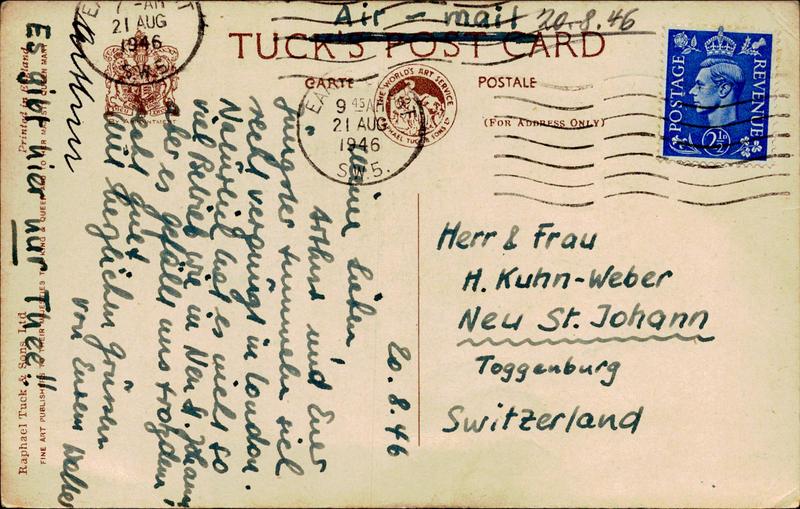 Air - mail 20.8.46
TUCK'S POST CARD
CARTE POSTALE
(FOR ADDRESS ONLY)
THE WORLD'S ART SERVICE
RAPHAEL TUCK & SONS LD
7 - AM
21 AUG
1946
S.W.5.
9 45 AM
21 AUG
1946
S.W.5.
POSTAGE REVENUE
2½D
20.8.46
Meine Lieben,
Arthur und Euer
Jüngster tummeln sich
recht vergnügt in London.
Natürlich hat es nicht so
viel Betrieb wie in Neu St. Johann,
aber es gefällt uns trotzdem
recht gut.
Mit herzlichen Grüssen
von Eurem Walter
Arthur
Es gibt hier nur Thee!!
Herr & Frau
H. Kuhn-Weber
Neu St. Johann
Toggenburg
Switzerland
Printed in England
Raphael Tuck & Sons Ltd
FINE ART PUBLISHERS TO THEIR MAJESTIES THE KING & QUEEN AND TO HER MAJESTY QUEEN MARY